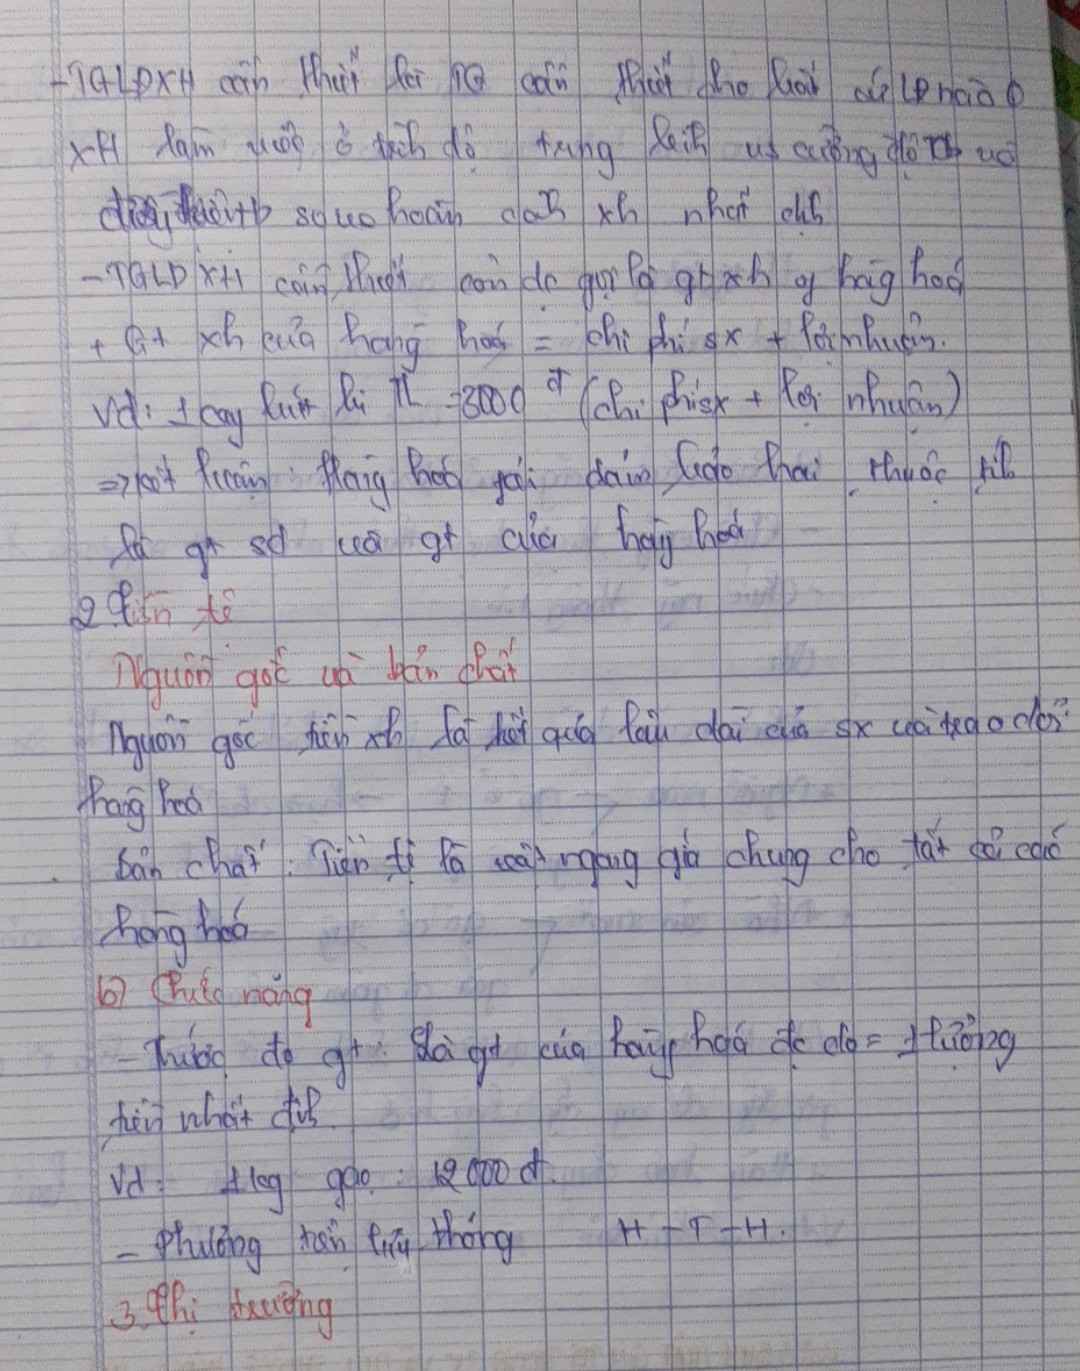 - TGLĐXH cần thiết là TG cần thiết cho bất cứ LĐ nào
XH làm ở trình độ trung bình và cường độ TB và
so vs hoàn cảnh xh nhất định
- TGLĐXH cần thiết còn đc gọi là gt xh of hàng hoá
+ Gt xh của hàng hoá = chi phí sx + lợi nhuận.
Vd: 1 cây bút bi TL = 3000đ (chi phí sx + lợi nhuận)
=> kết luận: Hàng hoá thuộc tính
là gt sd và gt của hàng hoá
2. Tiền tệ
Nguồn gốc và bản chất
Nguồn gốc tiền xh là kết quả lâu dài của sx và trao đổi
hàng hoá
bản chất: Tiền tệ là vật ngang giá chung cho tất cả các
hàng hoá
b) Chức năng
- Thước đo gt: là gt của hàng hoá đc đo = 1 lượng
tiền nhất định.
Vd: 1kg gạo: 12000đ.
- Phương tiện lưu thông H - T - H.
3. Thị trường